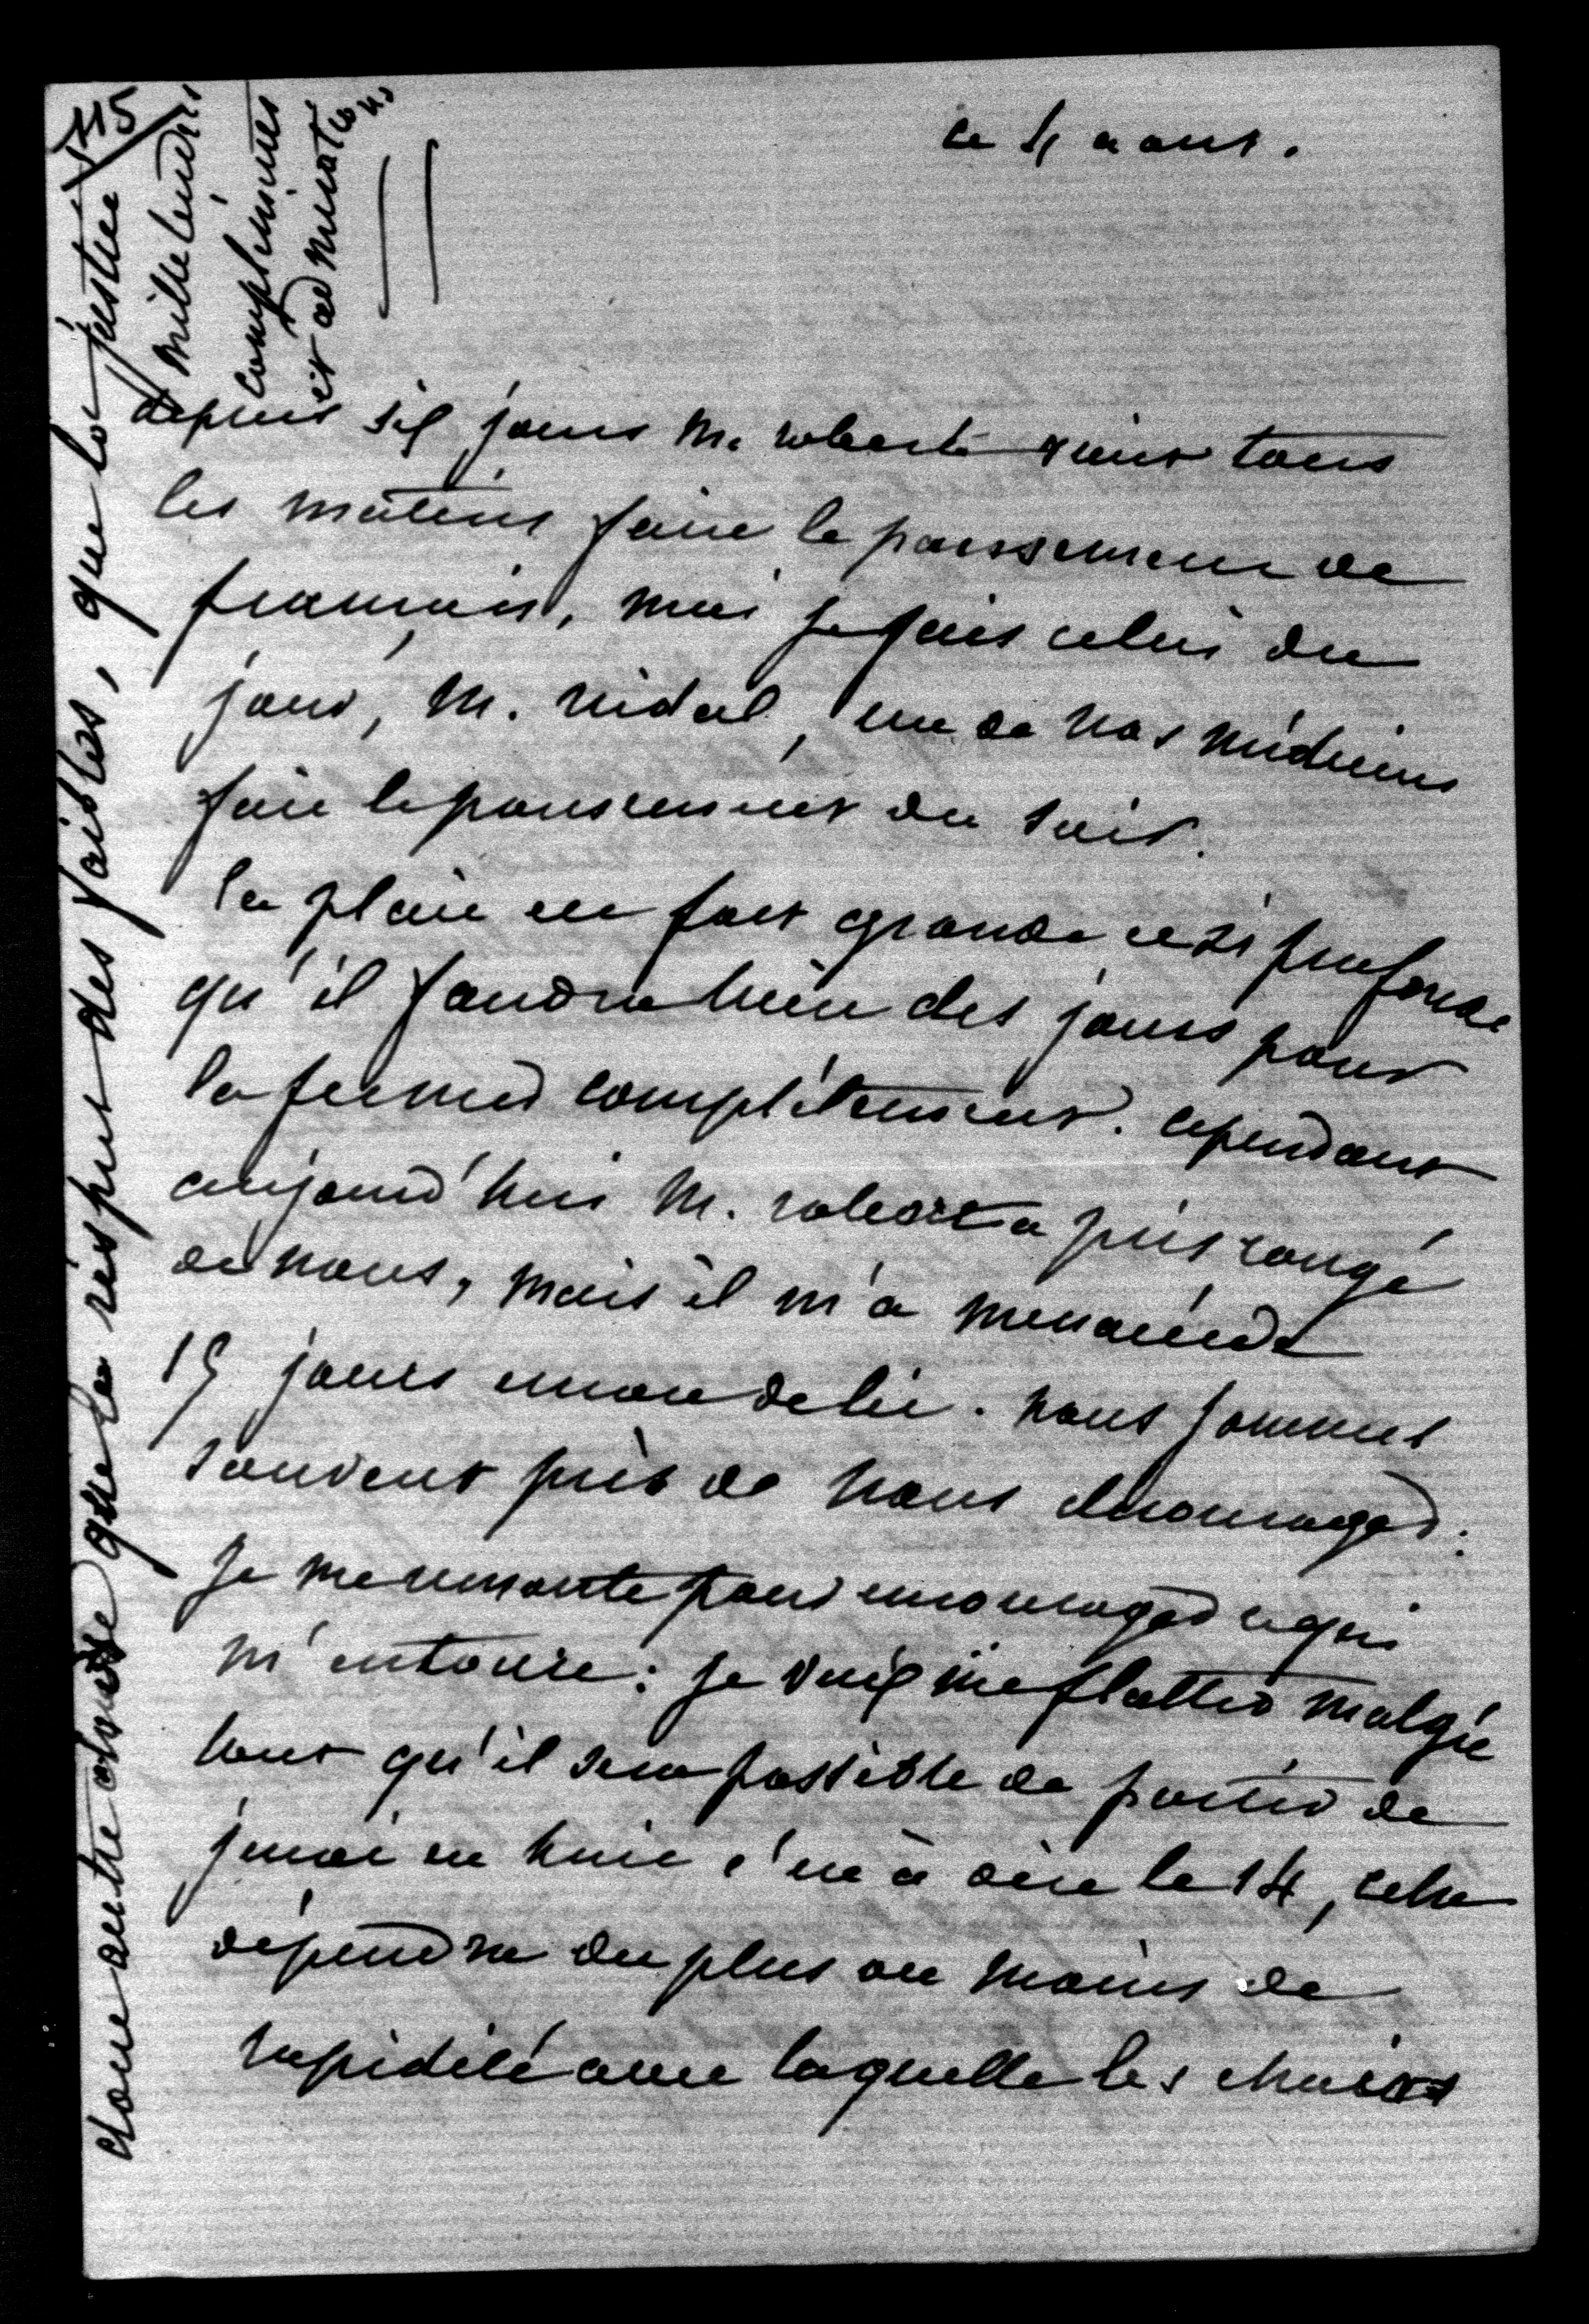 ce 4 aout.
depuis six jours M. robert vient tous
les matins faire le pansement de
français, moi je fais celui du
jour, M. vidal, un de nos médecins
fait le pansement du soir.
la plaie est fort grande et si profonde
qu'il faudra bien des jours pour
la fermer complètement. cependant
aujourd'hui M. robert a pris congé
de nous, mais il m'a menacée de
15 jours encore de lit. nous sommes
souvent près de nous décourager.
je me remonte pour encourager ce qui
m'entoure : je veux me flatter malgré
tout qu'il sera possible de partir de
jeudi en huit c'est à dire le 14, cela
dépendra du plus ou moins de
rapidité avec laquelle les chairs
chose autre que le respect des faibles, que la justice
mille tendres
compliments
et admirations